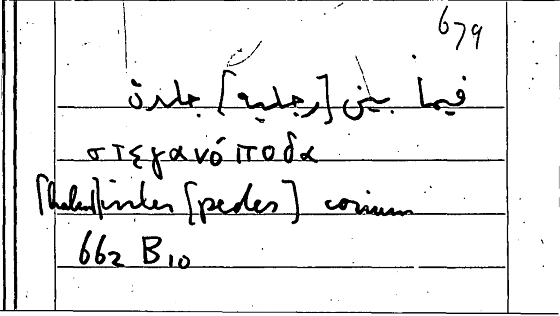 679
فيما بين [رجليه] جلدة
στεγανόποδα
[habent] inter [pedes] corium
662 B10